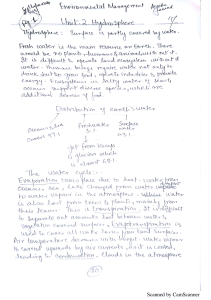 Environmental Management
Pg 1
Unit 2 Hydrosphere
Hydrosphere : Surface is partly covered by water.
Fresh water is the main resource on Earth. There
would be no plants, humans & animals without it.
It is difficult to operate land ecosystem without
water. Humans being require water not only to
drink but to grow food, operate industries & provide
energy. Ecosystems in salty water of
oceans support diverse species, which are
additional sources of food.
Distribution of earth's water
Oceans
97%
Freshwater
3%
Surface
water
0.3%
Ice from
glaciers
is almost 68%
The water cycle:-
Evaporation takes place due to heat. Water from
Oceans, sea, lake changed from water
to water vapour in the atmosphere. Water
is also lost from trees & plants, mainly from
their leaves. This is transpiration. It is difficult
to separate out amounts lost between water &
vegetation covered surface. Evapotranspiration is
used to cover all water loss from land surface.
Air temperature decreases with height. Water vapour
is carried upwards by air currents, and is cooled,
leading to condensation. Clouds in the atmosphere
Scanned by CamScanner